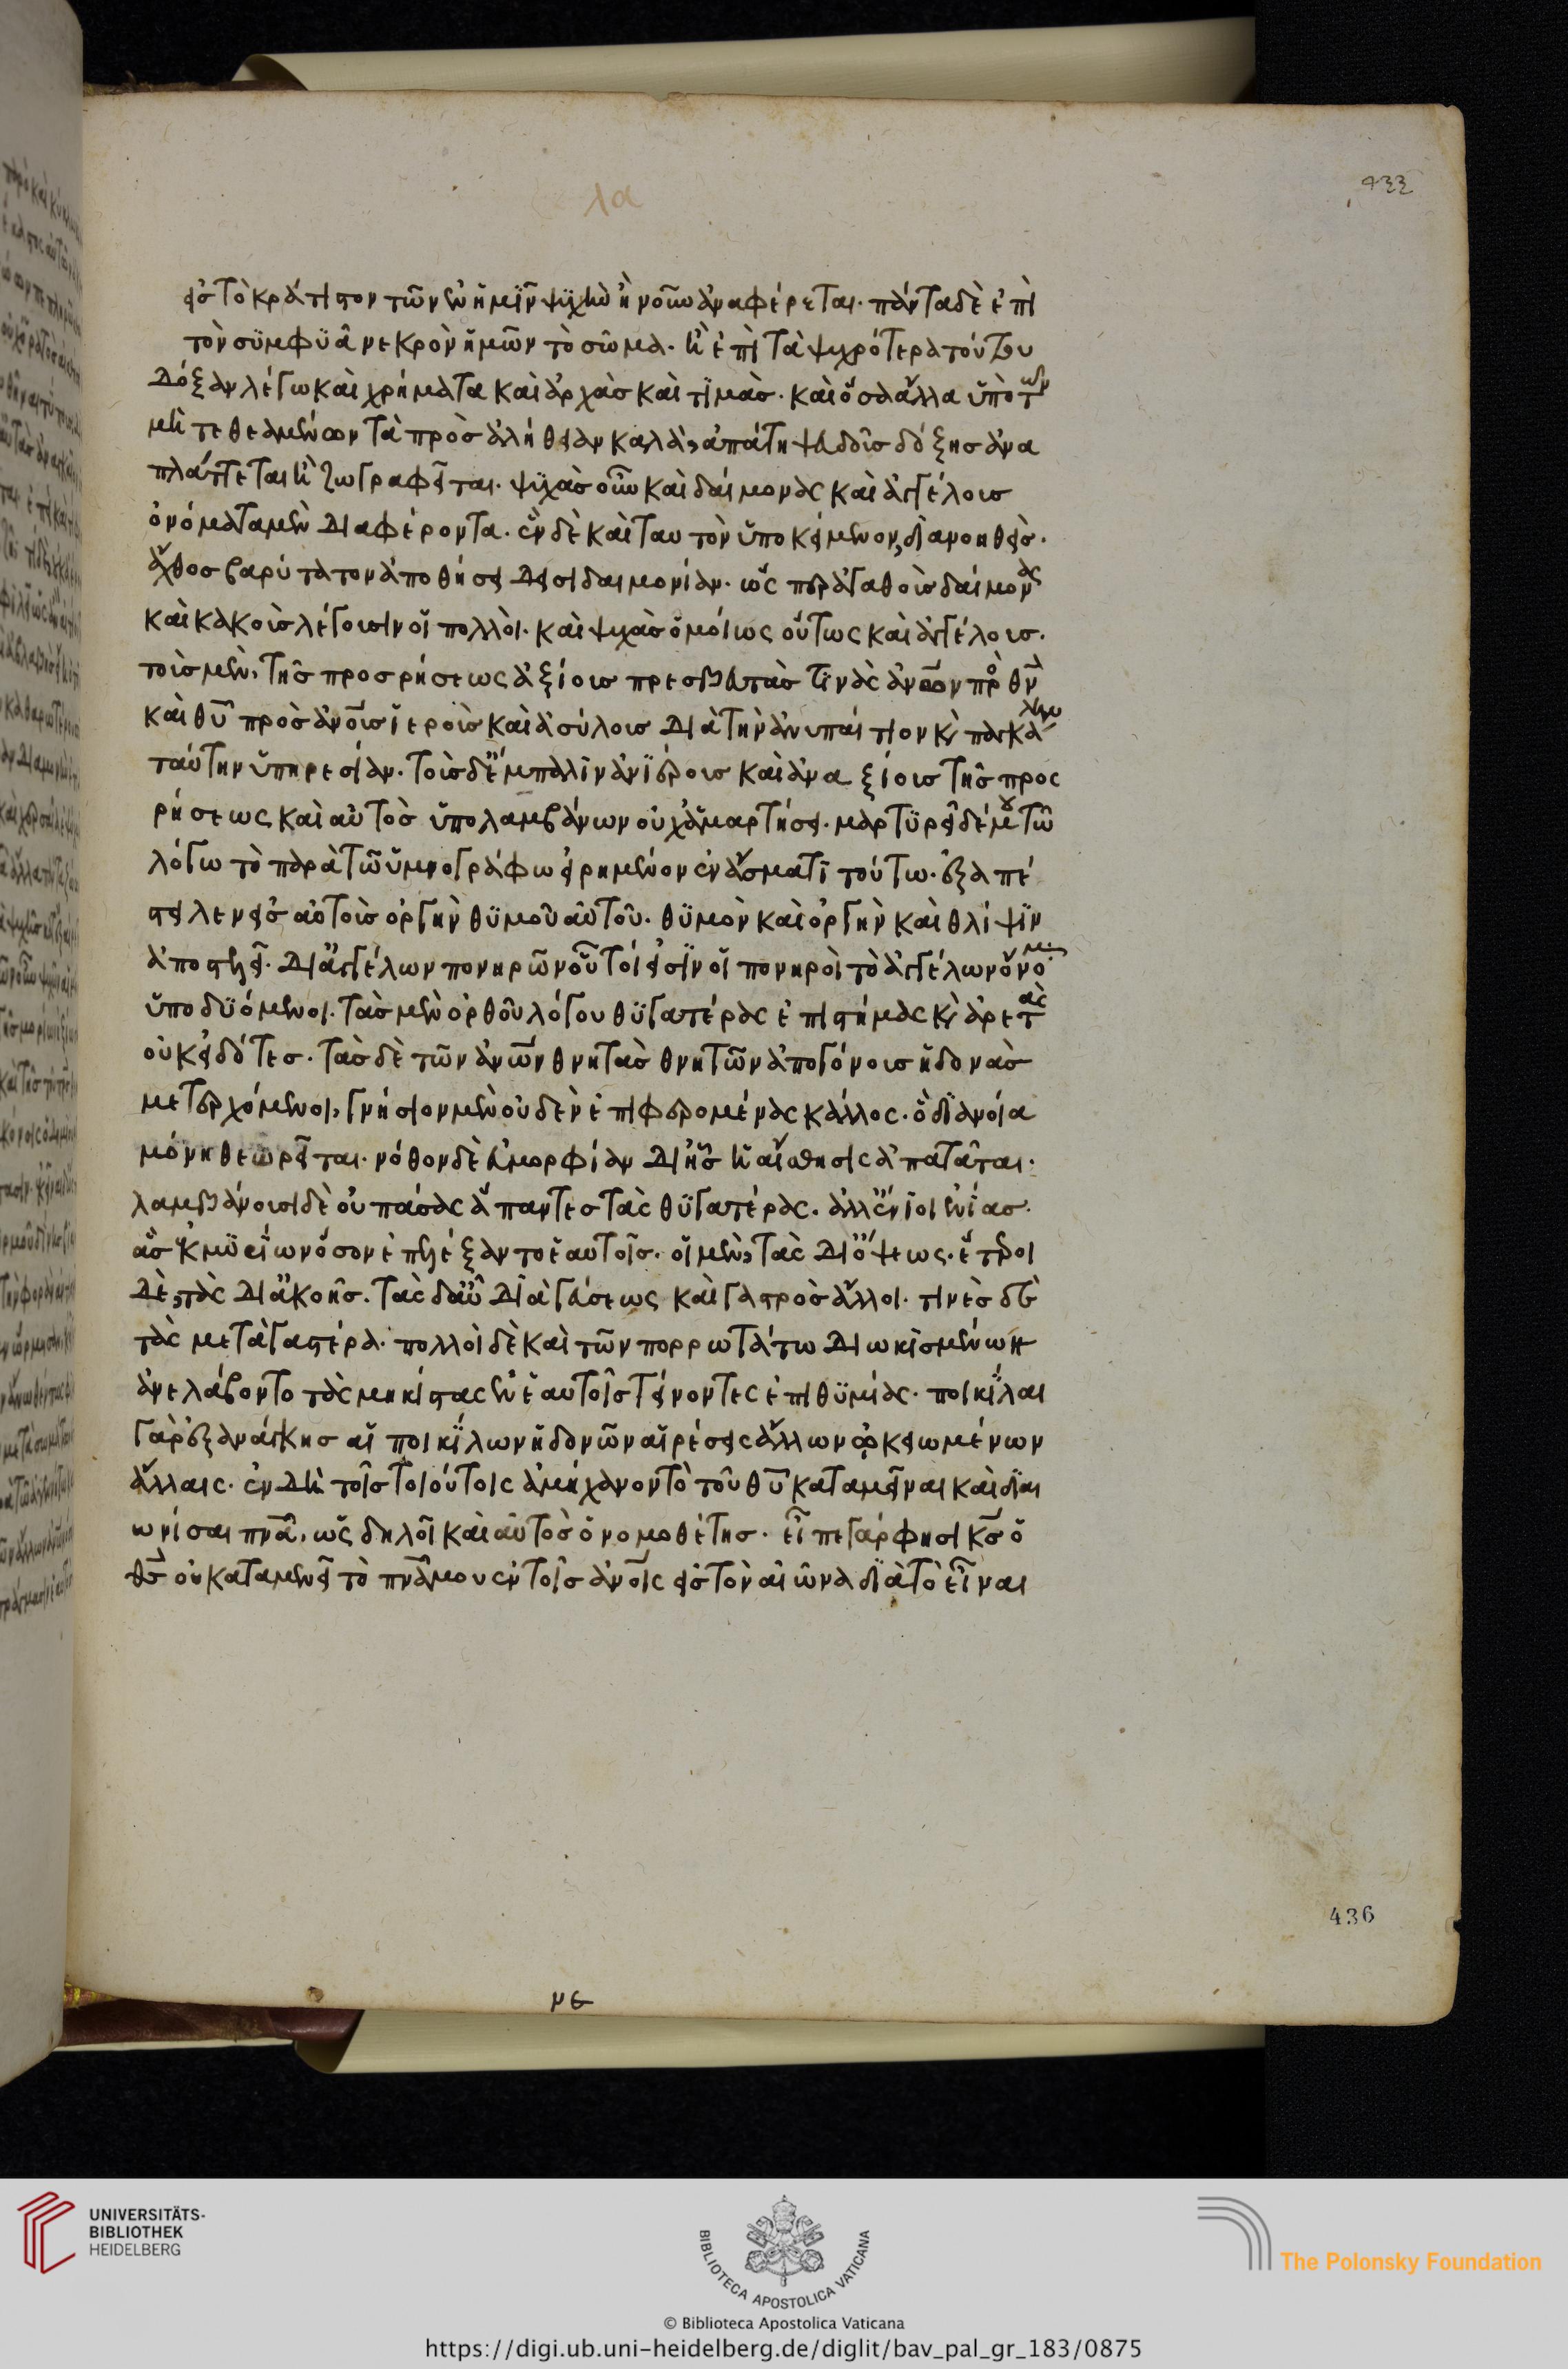 λα
433
εἰς τὸ κράτιστον τῶν ἐν ἡμῖν ψυχὴν ἢ νοῦν ἀναφέρεται· πάντα δὲ ἐπὶ
τὸν συμφυᾶ νεκρὸν ἡμῶν τὸ σῶμα· ἢ ἐπὶ τὰ ψυχρότερα τούτου
δόξαν λέγω καὶ χρήματα καὶ ἀρχὰς καὶ τιμὰς· καὶ ὅσα ἄλλα ὑπὸ τῶν
μὴ τεθεαμένων τὰ πρὸς ἀλήθειαν καλὰ, ἀπάτη ψευδοῦς δόξης ἀνα
πλάττεται ἢ ζωγραφεῖται· ψυχὰς οὖν καὶ δαίμονας καὶ ἀγγέλους
ὀνόματα μὲν διαφέροντα· ἓν δὲ καὶ ταυτὸν ὑποκείμενον, διανοηθεὶς·
ἄχθος βαρύτατον ἀποθήσει δεισιδαιμονίαν· ὥσπερ ἀγαθοὺς δαίμονας
καὶ κακοὺς λέγουσιν οἱ πολλοὶ· καὶ ψυχὰς ὁμοίως οὕτως καὶ ἀγγέλους·
τοὺς μὲν, τῆς προσρήσεως ἀξίους πρεσβευτὰς τινὰς ἀνων πρὸ θν
καὶ θυ πρὸς ἀνους ἱεροὺς καὶ ἀσύλους διὰ τὴν ἀνυπαίτιον κ παγκάλην
ταύτην ὑπηρεσίαν· τοὺς δ' ἔμπαλιν ἀνιέρους καὶ ἀναξίους τῆς προς
ρήσεως καὶ αὐτὸς ὑπολαμβάνων οὐχ ἁμαρτήσει· μαρτυρεῖ δέ μου τῶ
λόγω τὸ παρὰ τῶ ὑμνογράφω εἰρημένον ἐν ἄσματι τούτω· ἐξαπέ
στειλεν εἰς αὐτοὺς ὀργὴν θυμοῦ αὐτοῦ· θυμὸν καὶ ὀργὴν καὶ θλίψιν
ἀποστολὴν δι' ἀγγέλων πονηρῶν οὗτοί εἰσιν οἱ πονηροὶ τὸ ἀγγέλων ὄνομα
ὑποδυόμενοι· τὰς μὲν ὀρθοῦ λόγου θυγατέρας ἐπιστήμας κ ἀρετὰς
οὐκ εἰδότες· τὰς δὲ τῶν ἀνων θνητὰς θνητῶν ἀπογόνους ἡδονὰς
μετερχόμενοι, γνήσιον μὲν οὐδὲν ἐπιφερομένας κάλλος· ὃ διανοία
μόνη θεωρεῖται· νόθον δὲ εὐμορφίαν δι' ἧς ἡ αἴσθησις ἀπατᾶται·
λαμβάνουσι δὲ οὐ πάσας ἅπαντες τὰς θυγατέρας· ἀλλ' ἔνιοι ἐνίας·
ἃς ἐκ μυρίων ὅσων ἐπελέξαντο ἑαυτοῖς· οἱ μὲν, τὰς δι' ὄψεως· ἕτεροι
δὲ, τὰς δι' ἀκοῆς· τὰς δ' αὖ διὰ γεύσεως καὶ γαστρὸς ἄλλοι· τινὲς δὲ
τὰς μετὰ γαστέρα· πολλοὶ δὲ καὶ τῶν πορρωτάτω διωκισμένων
ἀντελάβοντο τὰς μηκίστας ἐν ἑαυτοῖς τείνοντες ἐπιθυμίας· ποικίλαι
γὰρ ἐξ ἀνάγκης αἱ ποικίλων ἡδονῶν αἱρέσεις ἄλλων προσωκειωμένων
ἄλλαις· ἐν δὴ τοῖς τοιούτοις ἀμήχανον τὸ τοῦ θυ καταμεῖναι καὶ διαι
ωνίσαι πνα, ὡς δηλοῖ καὶ αὐτὸς ὁ νομοθέτης· εἶπε γάρ φησι κς ὁ
θς οὐ καταμενεῖ τὸ πνα μου ἐν τοῖς ἀνοις εἰς τὸν αἰῶνα διὰ τὸ εἶναι
436
UNIVERSITÄTS-
BIBLIOTHEK
HEIDELBERG
BIBLIOTECA APOSTOLICA VATICANA
The Polonsky Foundation
© Biblioteca Apostolica Vaticana
https://digi.ub.uni-heidelberg.de/diglit/bav_pal_gr_183/0875